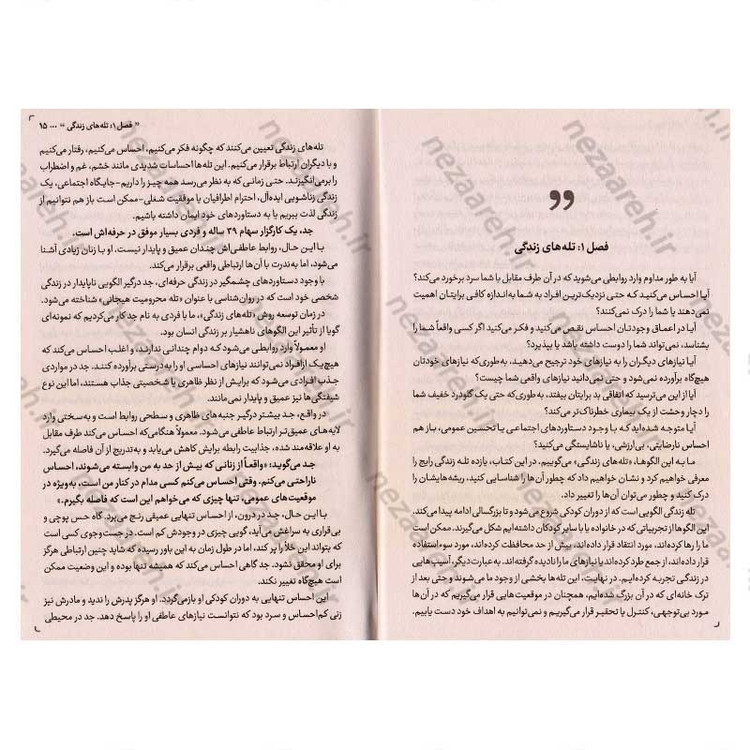 فصل ۱: تله‌های زندگی
آیا به طور مداوم وارد روابطی می‌شوید که در آن طرف مقابل با شما سرد برخورد می‌کند؟
آیا احساس می‌کنید که حتی نزدیک‌ترین افراد به شما به‌اندازه کافی برایتان اهمیت
نمی‌دهند یا شما را درک نمی‌کنند؟
آیا در اعماق وجودتان احساس نقص می‌کنید و فکر می‌کنید اگر کسی واقعاً شما را
بشناسد، نمی‌تواند شما را دوست داشته باشد یا بپذیرد؟
آیا نیازهای دیگران را به نیازهای خود ترجیح می‌دهید، به‌طوری‌که نیازهای خودتان
هیچ‌گاه برآورده نمی‌شود و حتی نمی‌دانید نیازهای واقعی شما چیست؟
آیا از این می‌ترسید که اتفاقی بد برایتان بیفتد، به‌طوری‌که حتی یک گلودرد خفیف شما
را دچار وحشت از یک بیماری خطرناک‌تر می‌کند؟
آیا متوجه شده‌اید که با وجود دستاوردهای اجتماعی یا تحسین عمومی، باز هم
احساس نارضایتی، بی‌ارزشی، یا ناشایستگی می‌کنید؟
ما به این الگوها، «تله‌های زندگی» می‌گوییم. در این کتاب، یازده تله زندگی رایج را
معرفی خواهیم کرد و نشان خواهیم داد که چطور آن‌ها را شناسایی کنید، ریشه‌هایشان را
درک کنید و چطور می‌توان آن‌ها را تغییر داد.
تله زندگی الگویی است که از دوران کودکی شروع می‌شود و تا بزرگسالی ادامه پیدا می‌کند.
این الگوها از تجربیاتی که در خانواده یا با سایر کودکان داشته‌ایم شکل می‌گیرند. ممکن است
ما را رها کرده‌اند، مورد انتقاد قرار داده‌اند، بیش از حد محافظت کرده‌اند، مورد سوءاستفاده
قرار داده‌اند، از جمع طرد کرده‌اند یا نیازهای ما را نادیده گرفته‌اند. به عبارت دیگر، آسیب‌هایی
در زندگی تجربه کرده‌ایم. در نهایت، این تله‌ها بخشی از وجود ما می‌شوند و حتی بعد از
ترک خانه‌ای که در آن بزرگ شده‌ایم، همچنان در موقعیت‌هایی قرار می‌گیریم که در آن‌ها
مورد بی‌توجهی، کنترل یا تحقیر قرار می‌گیریم و نمی‌توانیم به اهداف خود دست یابیم.
« فصل ۱: تله‌های زندگی » ... ۱۵
تله‌های زندگی تعیین می‌کنند که چگونه فکر می‌کنیم، احساس می‌کنیم، رفتار می‌کنیم
و با دیگران ارتباط برقرار می‌کنیم. این تله‌ها احساسات شدیدی مانند خشم، غم و اضطراب
را برمی‌انگیزند. حتی زمانی که به نظر می‌رسد همه چیز را داریم-جایگاه اجتماعی، یک
زندگی زناشویی ایده‌آل، احترام اطرافیان یا موفقیت شغلی-ممکن است باز هم نتوانیم از
زندگی لذت ببریم یا به دستاوردهای خود ایمان داشته باشیم.
جد، یک کارگزار سهام ۳۹ ساله و فردی بسیار موفق در حرفه‌اش است.
با این حال، روابط عاطفی‌اش چندان عمیق و پایدار نیست. او با زنان زیادی آشنا
می‌شود، اما به‌ندرت با آن‌ها ارتباطی واقعی برقرار می‌کند.
با وجود دستاوردهای چشمگیر در زندگی حرفه‌ای، جد درگیر الگویی ناپایدار در زندگی
شخصی خود است که در روان‌شناسی با عنوان «تله محرومیت هیجانی» شناخته می‌شود.
در زمان توسعه روش «تله‌های زندگی»، ما با فردی به نام جد کار می‌کردیم که نمونه‌ای
گویا از تأثیر این الگوهای ناهشیار بر زندگی انسان بود.
او معمولاً وارد روابطی می‌شود که دوام چندانی ندارند، و اغلب احساس می‌کند که
هیچ‌یک از افراد نمی‌توانند نیازهای احساسی او را به‌درستی برآورده کنند. جد در مواردی
جذب افرادی می‌شود که برایش از نظر ظاهری یا شخصیتی جذاب هستند، اما این نوع
شیفتگی‌ها نیز عمیق و پایدار نمی‌مانند.
در واقع، جد بیشتر درگیر جنبه‌های ظاهری و سطحی روابط است و به‌سختی وارد
لایه‌های عمیق‌تر ارتباط عاطفی می‌شود. معمولاً هنگامی‌که احساس می‌کند طرف مقابل
به او علاقه‌مند شده، جذابیت رابطه برایش کاهش می‌یابد و به‌تدریج از آن فاصله می‌گیرد.
جد می‌گوید: «واقعاً از زنانی که بیش از حد به من وابسته می‌شوند، احساس
ناراحتی می‌کنم. وقتی احساس می‌کنم کسی مدام در کنار من است، به‌ویژه در
موقعیت‌های عمومی، تنها چیزی که می‌خواهم این است که فاصله بگیرم.»
با این حال، جد در درون، از احساس تنهایی عمیقی رنج می‌برد. گاه حس پوچی و
بی‌قراری به سراغش می‌آید، گویی چیزی در وجودش کم است. در جست‌وجوی کسی است
که بتواند این خلأ را پر کند، اما در طول زمان به این باور رسیده که شاید چنین ارتباطی هرگز
برای او محقق نشود. جد گاهی احساس می‌کند که همیشه تنها بوده و این وضعیت ممکن
است هیچ‌گاه تغییر نکند.
این احساس تنهایی به دوران کودکی او بازمی‌گردد. او هرگز پدرش را ندید و مادرش نیز
زنی کم‌احساس و سرد بود که نتوانست نیازهای عاطفی او را پاسخ دهد. جد در محیطی
nezaareh.ir